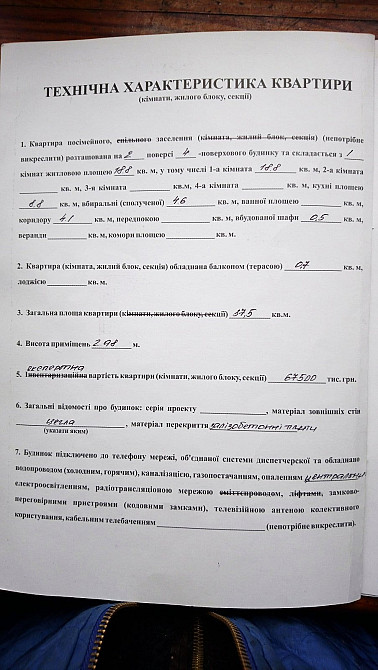 ТЕХНІЧНА ХАРАКТЕРИСТИКА КВАРТИРИ
(кімнати, жилого блоку, секції)
1. Квартира посімейного, спільного заселення (кімната, жилий блок, секція) (непотрібне
викреслити) розташована на 2 поверсі 4 -поверхового будинку та складається з 1
кімнат житловою площею 18.8 кв. м, у тому числі 1-а кімната 18.8 кв. м, 2-а кімната
кв. м, 3-я кімната кв.м, 4-а кімната кв. м, кухні площею
8.8 кв. м, вбиральні (сполученої) 4.6 кв. м, ванної площею кв. м,
коридору 4.1 кв. м, передпокою кв. м, вбудованої шафи 0,5 кв. м,
веранди кв. м, комори площею кв. м.
2. Квартира (кімната, жилий блок, секція) обладнана балконом (терасою) 0,7 кв. м,
лоджією кв. м.
3. Загальна площа квартири (кімнати, жилого блоку, секції) 37,5 кв.м.
4. Висота приміщень 2.98 м.
експертна
5. Інвентаризаційна вартість квартири (кімнати, жилого блоку, секції) 67500 тис. грн.
6. Загальні відомості про будинок: серія проекту , матеріал зовнішніх стін
цегла , матеріал перекриття залізобетонні плити
(указати яким)
7. Будинок підключено до телефону мережі, об'єднаної системи диспетчерскої та обладнано
водопроводом (холодним, горячим), каналізацією, газопостачанням, опаленням центральним
електроосвітленням, радіотрансляціоною мережою сміттєпроводом, ліфтами, замково-
переговорними пристроями (кодовими замками), телевізійною антеною колективного
користування, кабельним телебаченням (непотрібне викреслити).